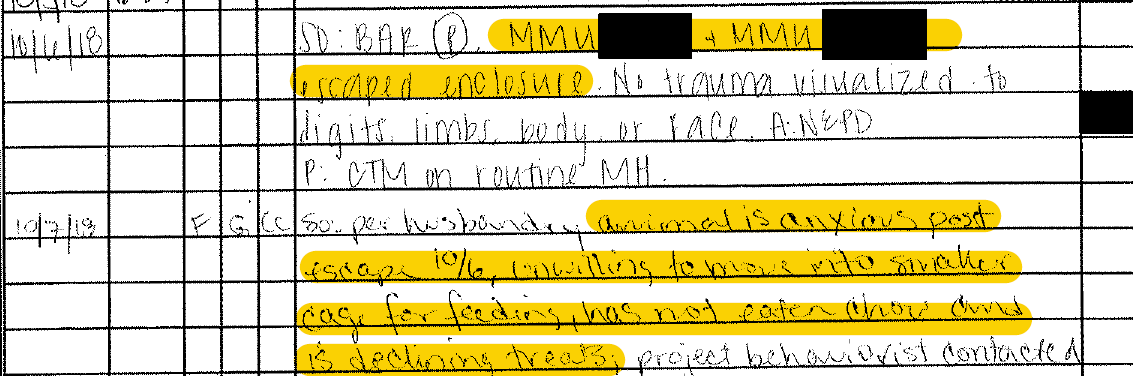 10/6/18 SO: BAR (P). MMU + MMU
escaped enclosure. No trauma visualized to
digits, limbs, body, or face. A: NEPD
P: CTM on routine MH.
10/7/18 F G CC SO: per husbandry, animal is anxious post
escape 10/6, unwilling to move into smaller
cage for feeding, has not eaten chow and
is declining treats, project behaviorist contacted